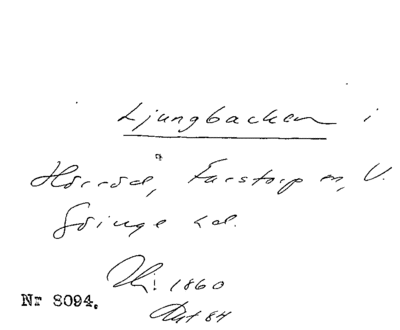 Ljungbacken i
Hörröd, Farstorp sn, V.
Göinge hd.
1860
Nr 8094.
84